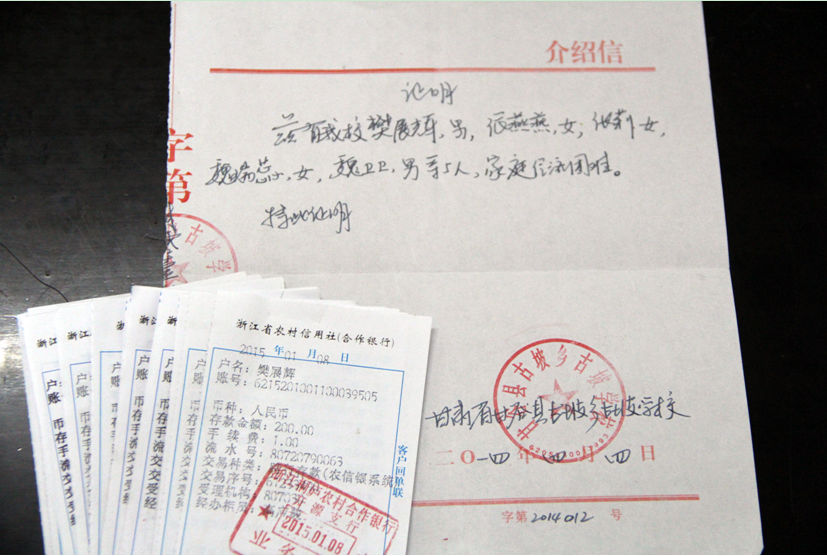 介绍信
证明
兹有我校樊展辉,男,张燕燕,女;张莉,女,
魏瑞蕊,女,魏卫卫,男等5人,家庭经济困难。
特此证明
字第
古坡学
甘谷县古坡乡古坡学校
甘肃省甘谷县古坡乡古坡学校
二〇一四年四月四日
字第2014012号
浙江省农村信用社(合作银行)
2015年01月08日
户名:樊展辉
账号:6215201001100039505
币种:人民币
存款金额:200.00
手续费:1.00
流水号:80720790063
交易种类:
(农信银系统
交易序号:
受理机构:
经办柜
客户回单联
农村合作银行
开源支行
2015.01.08